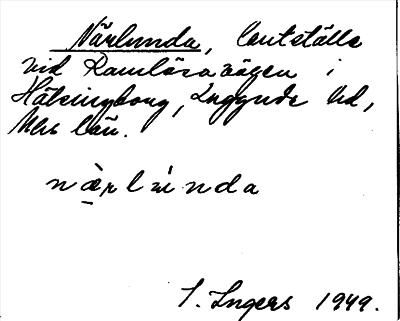 Närlunda, lantställe
vid Ramlösavägen i
Hälsingborg, Luggude hd,
Mhs län.
næ̀rlu̇nda
I. Ingers 1949.